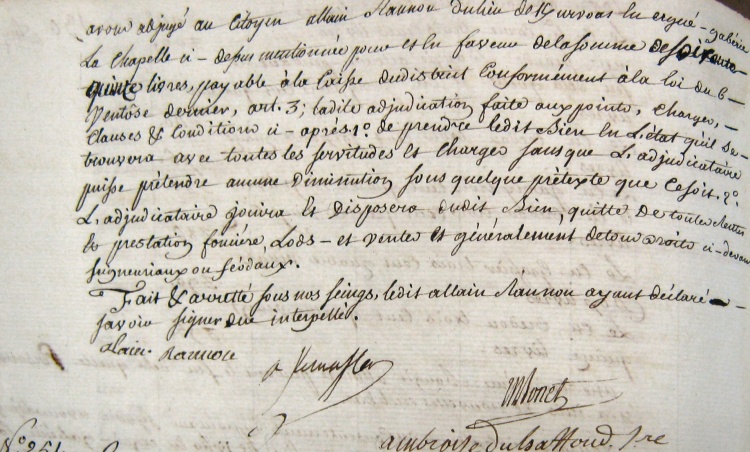 avons adjugé au Citoyen allain Rannou du lieu de Kervoas en ergué-gabéric
La Chapelle ci-dessus mentionnée pour et en faveur de la somme de soixante
quinze livres, payable à la Caisse du district Conformément à la loi du 6
Ventôse dernier, art. 3; ladite adjudication faite aux points, charges,
Clauses & Conditions ci-après. 1o. de prendre ledit Bien en L'état qu'il se
trouvera avec toutes les servitudes et charges sans que L'adjudicataire
puisse prétendre aucune Diminution sous quelque prétexte que ce soit, 2o.
L'adjudicataire jouira et Disposera dudit Bien, quitte de toutes Rentes
et prestation foncière, Lods-et ventes et généralement de tous droits ci-devant
seigneuriaux ou féodaux.
Fait & arretté sous nos seings, ledit allain Rannou ayant déclaré
savoir signer düe interpellé.
Rannou
ambroise
No. 251